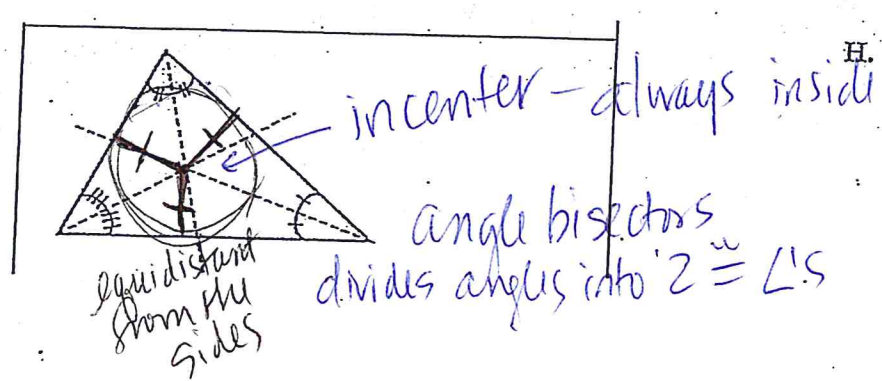 H.
incenter - always inside
angle bisectors
divides angles into 2 ≅ ∠'s
equidistant
from the
sides